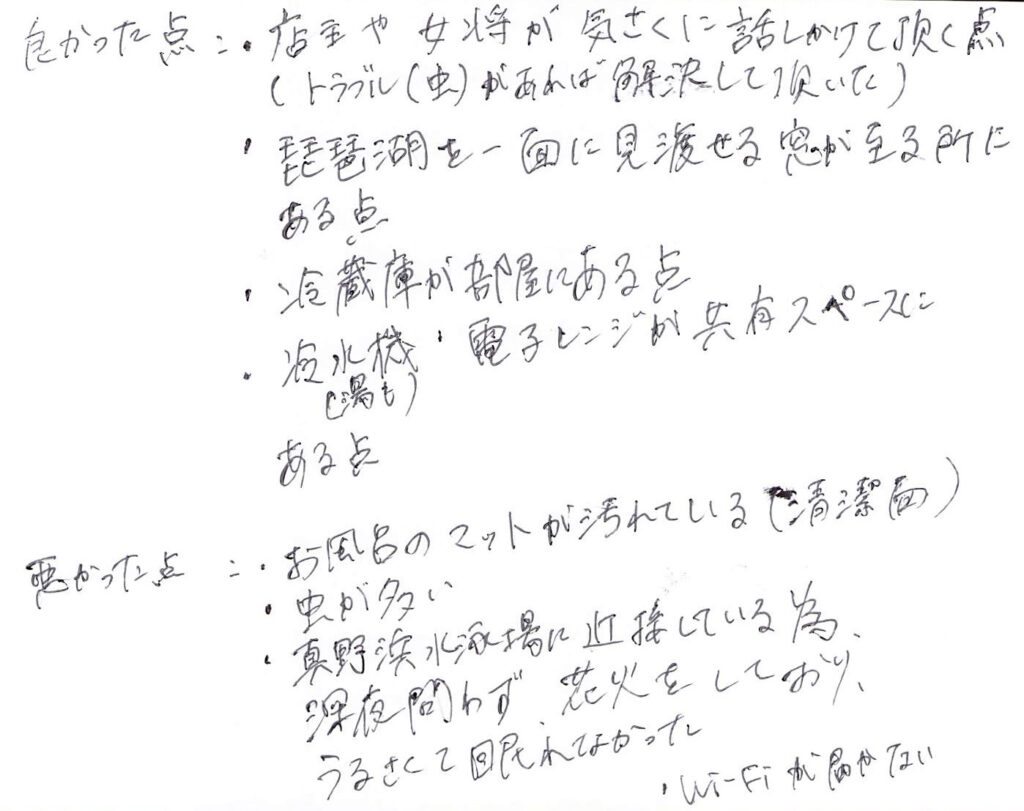 良かった点：・店主や女将が気さくに話しかけて頂く点
(トラブル(虫)があれば解決して頂いた)
・琵琶湖を一面に見渡せる窓が至る所に
ある点
・冷蔵庫が部屋にある点
・冷水機・電子レンジが共有スペースに
(湯も)
ある点
悪かった点：・お風呂のマットが汚れている(清潔面)
・虫が多い
・真野浜水泳場に近接している為、
深夜問わず、花火をしており、
うるさくて眠れなかった
・Wi-Fiが届かない